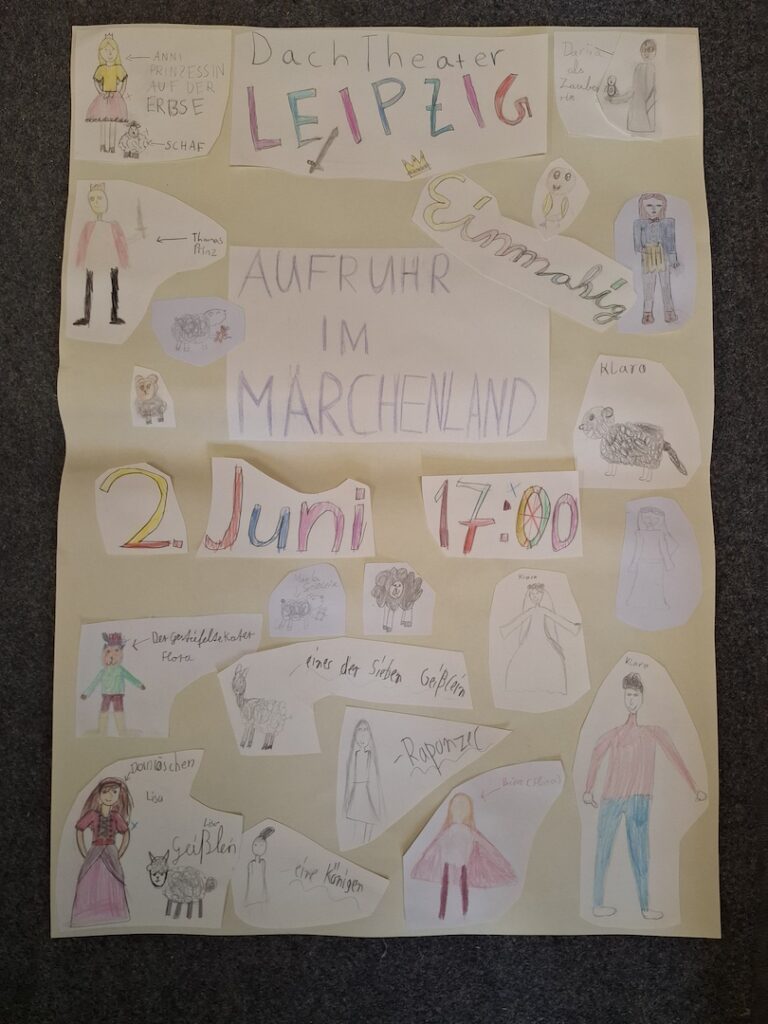 ANNI
PRINZESSIN
AUF DER
ERBSE
SCHAF
DachTheater
LEIPZIG
Darina
als
Zauber
rin
Thomas
Prinz
Einmahig
AUFRUHR
IM
MÄRCHENLAND
Klara
2. Juni 17:00
Klara
Der Gestiefelte Kater
Flora
- eines der Sieben Geißlein
Klara
- Rapunzel
Dornröschen
Lisa
Lisa
Geißlein
- eine Königen